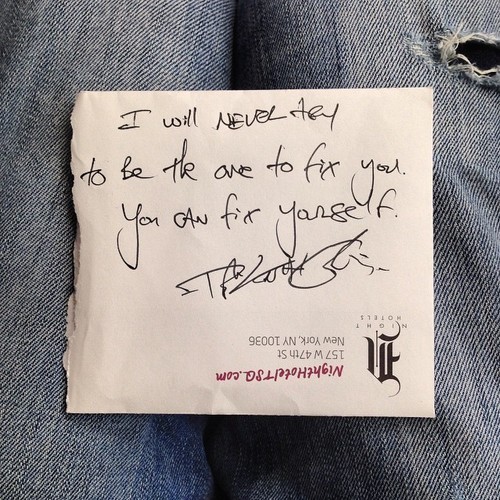 I will NEVER try
to be the one to fix you.
You CAN fix yourself.
NIGHT
HOTELS
157 W 47th St
New York, NY 10036
NightHotelTSQ.com